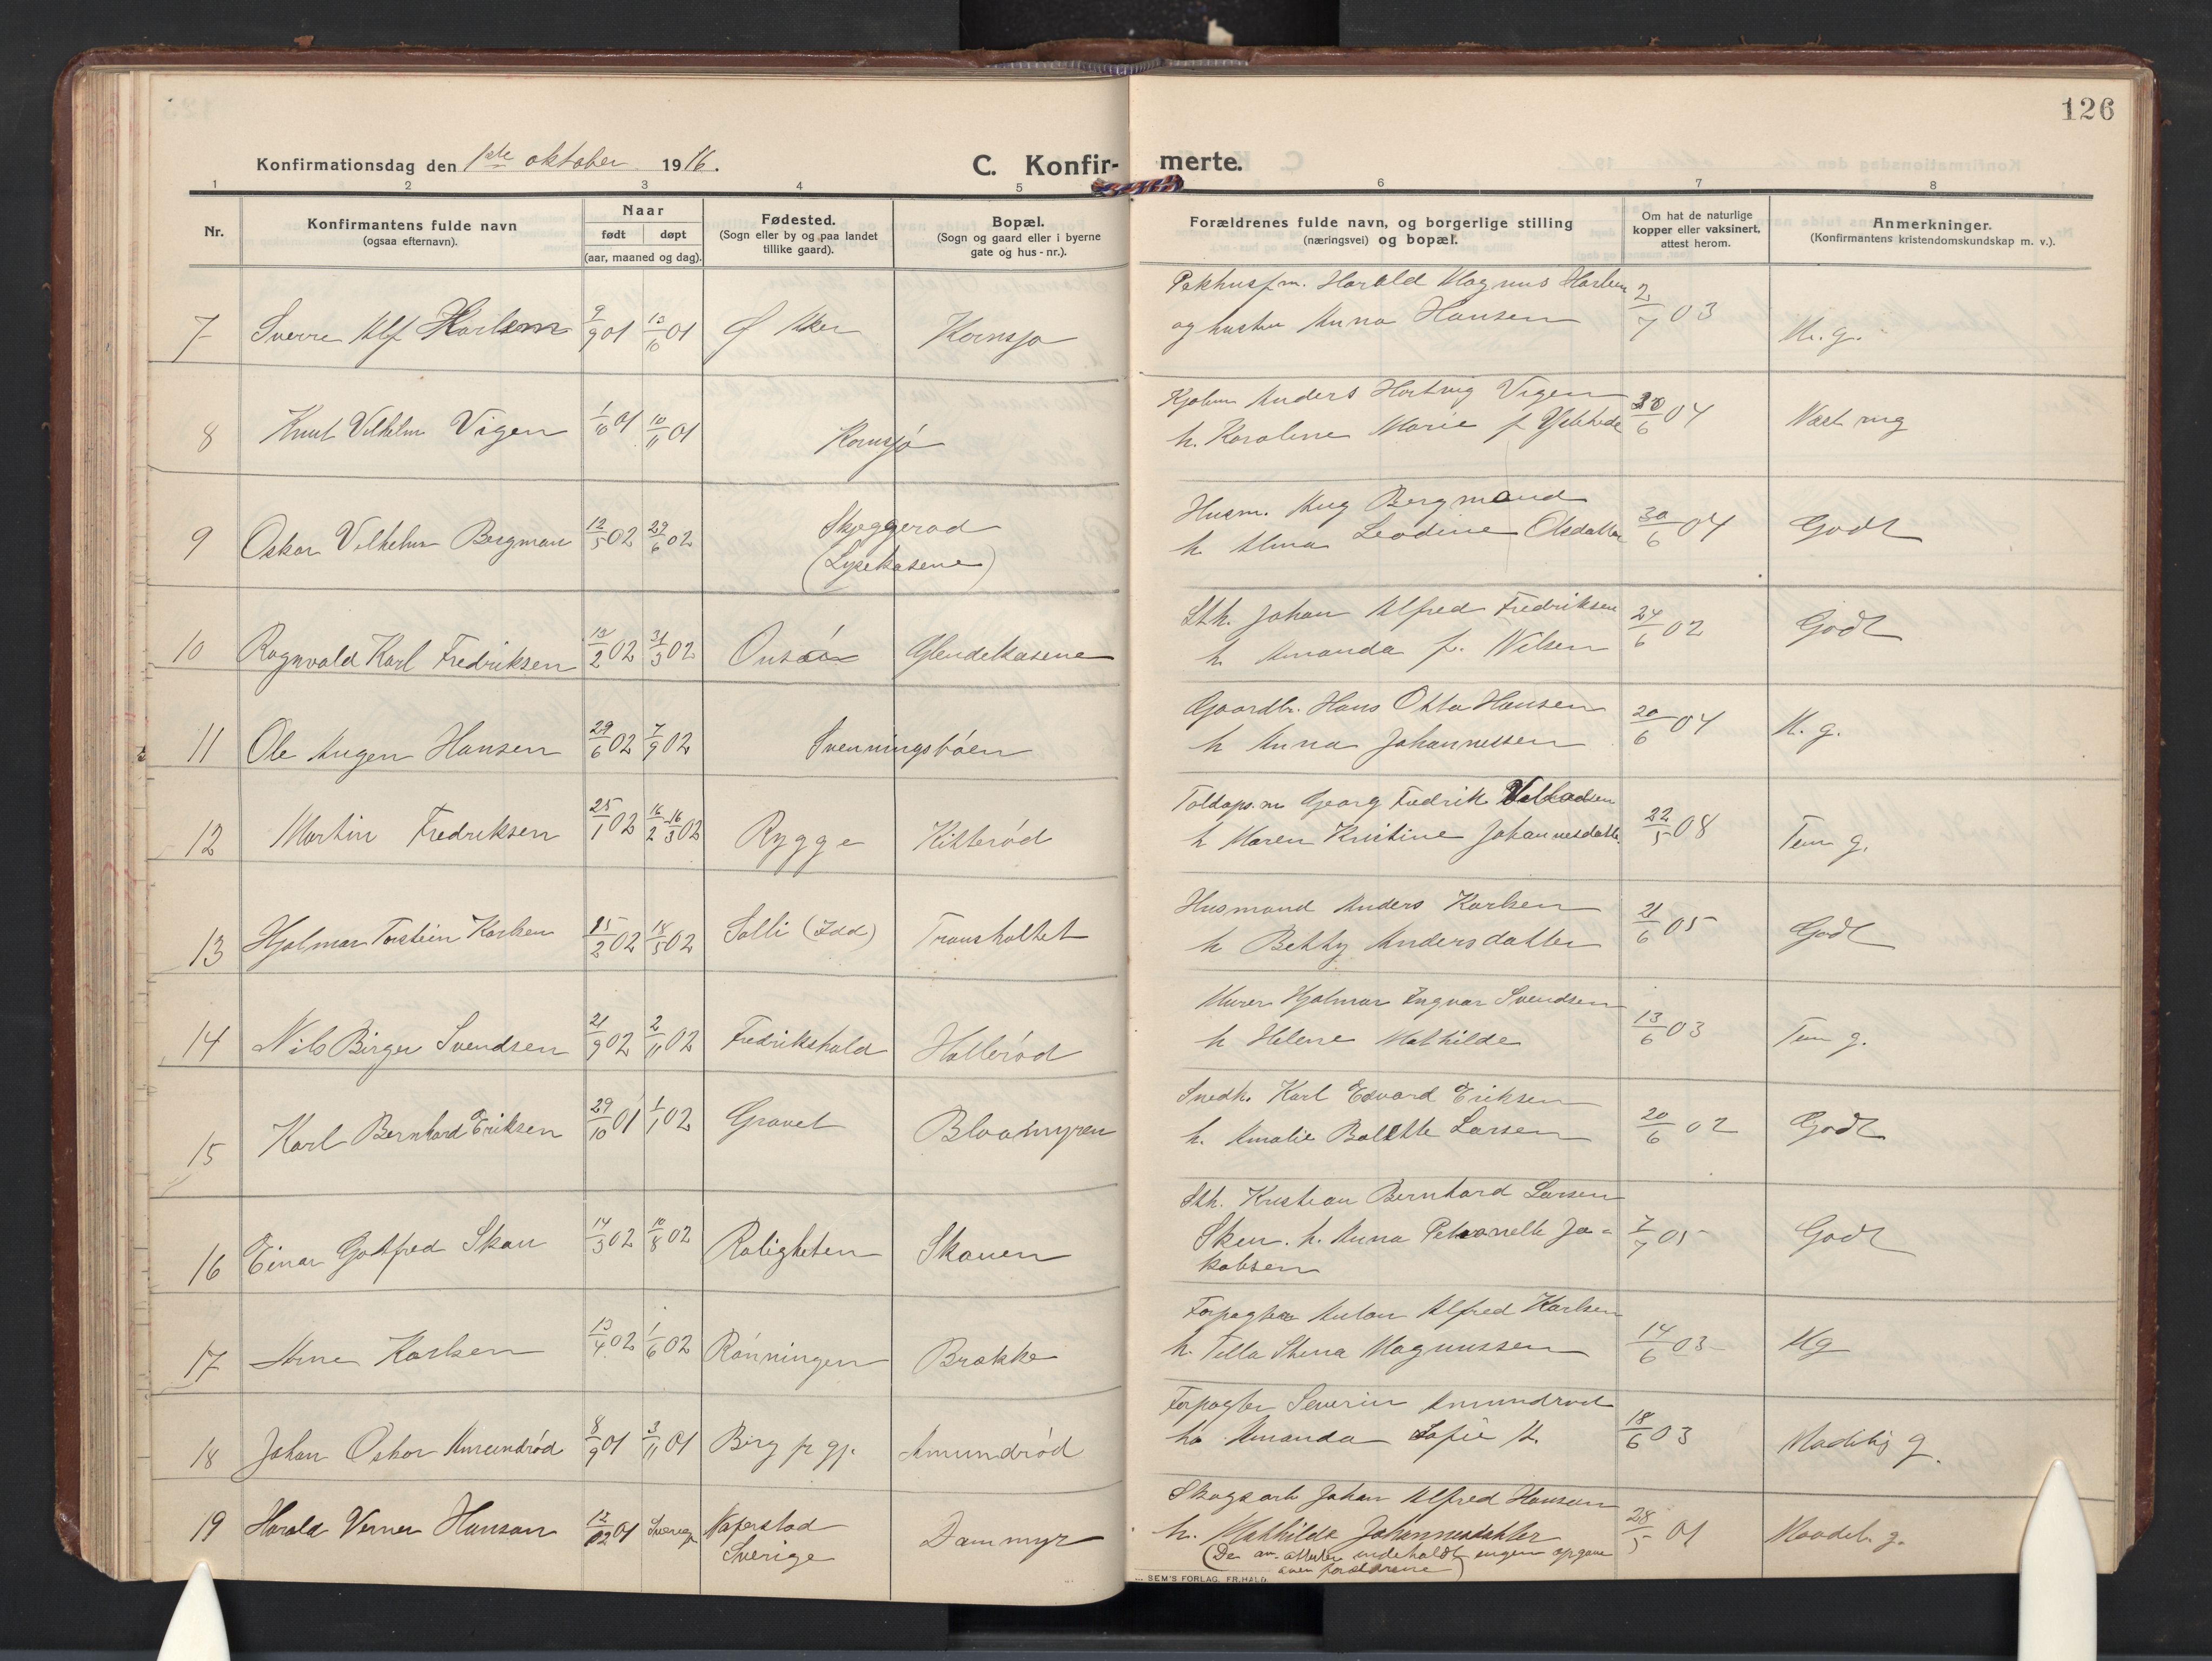 126
Konfirmationsdag den 1ste oktober 1916.
C. Konfir- merte.
1 2 3 4 5 6 7 8
Nr.
Konfirmantens fulde navn
(ogsaa efternavn).
Naar
født døpt
(aar, maaned og dag).
Fødested.
(Sogn eller by og paa landet
tillike gaard).
Bopæl.
(Sogn og gaard eller i byerne
gate og hus-nr.).
Forældrenes fulde navn, og borgerlige stilling
(næringsvei) og bopæl.
Om hat de naturlige
kopper eller vaksinert,
attest herom.
Anmerkninger.
(Konfirmantens kristendomskundskap m. v.).
7 Sverre Alf 9/9 01 13/10 01 Ø Aker Kornsjø
Pakhusfm. Harald Magnus
og hustru Anna Hansen
2/7 03
M. g.
8 Knut Vilhelm Vigen 1/10 01 10/11 01 Kornsjø
Anders Hartvig Vigen
h. Karoline Marie f.
6 04
Næst mg
9 Oskar Vilhelm Bergman 12/5 02 29/6 02 Skjeggerød
(Lysekasene)
Husm. Aug Bergmand
h Alma Leodine Olsdatter
30/6 04
Godt
10 Ragnvald Karl Fredriksen 13/2 02 31/3 02 Onsø Glendekasene
Sth. Johan Alfred Fredriksen
h Amanda f. Nilsen
24/6 02
Godt
11 Ole Augen Hansen 29/6 02 7/9 02 Svenningsbøen
Gaardbr. Hans Otto Hansen
h Anna Johannessen
20/6 04
M. g.
12 Martin Fredriksen 25/1 02 16/2-16/3 02 Rygge Kitterød
Toldops.m Georg Fredrik
h Maren Kristine Johannesdatter
22/5 08
Tem g.
13 Hjalmar Torstein Karlsen 15/2 02 18/5 02 Solli (Idd) Transholtet
Husmand Anders Karlsen
h Betty Andersdatter
21/6 05
Godt
14 Nils Birger Svendsen 21/9 02 2/11 02 Fredrikshald Hallerød
Murer Hjalmar Ingvar Svendsen
h Helene Mathilde
13/6 03
Tem g.
15 Karl Bernhard Eriksen 29/10 01 1/1 02 Gravel Blaamyren
Snedk. Karl Edvard Eriksen
h. Amalie Bolette Larsen
20/6 02
Godt
16 Einar Gotfred Skau 14/3 02 10/8 02 Roligheten Skauen
Sth. Kristian Bernhard Larsen
Skau. h. Anna Petronelle Ja-
kobsen
7/7 05
Godt
17 Arne Karlsen 13/4 02 1/6 02 Rønningen Brække
Forpagter Anton Alfred Karlsen
h. Tilla Stina Magnussen
14/6 03
Mg
18 Johan Oskar Amundrød 8/9 01 3/11 01 Berg pr gj. Amundrød
Forpagter Severin Amundrød
h. Amanda Sofie A.
18/6 03
Maadelig g.
19 Harald Verner Hansen 12/12 01 Sverige Naverstad
Sverige Dammyr
Skogsarb Johan Alfred Hansen
h. Mathilde Johannesdatter
(De an. attester indeholdt ingen opgave
over forældrene)
28/5 01
Maadel. g.
SEM'S FORLAG, FR.HALD